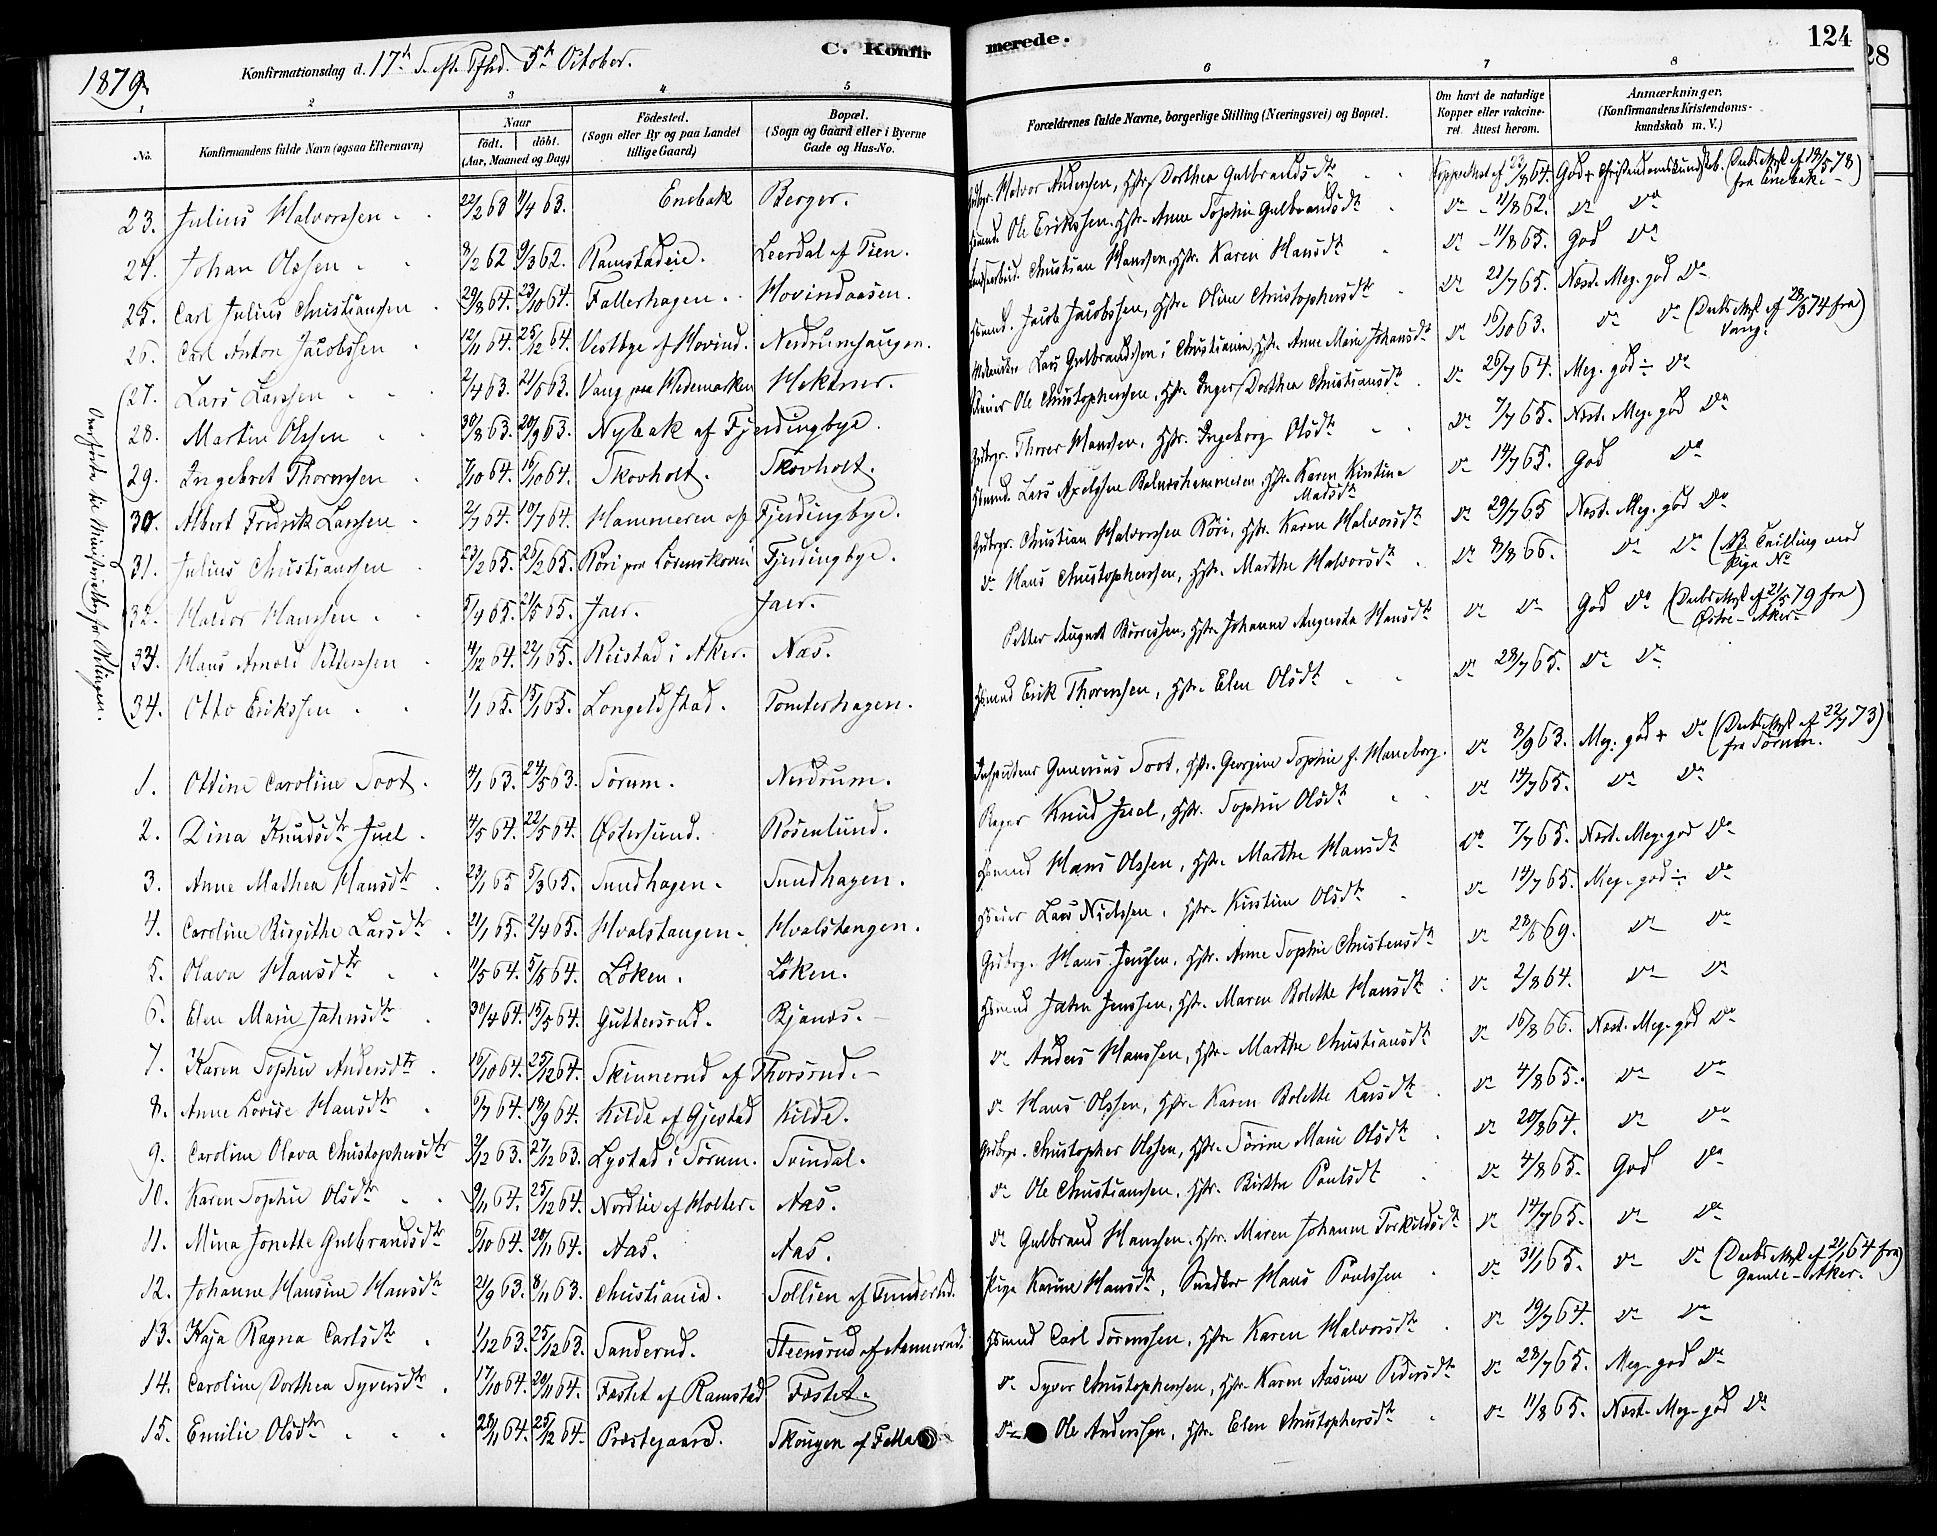 1879.
Konfirmationsdag d. 17de S. eft. Tfhd. 5te October.
C. Konfirmerede.
124
28
1 2 3 4 5 6 7 8
No.
Konfirmandens fulde Navn (ogsaa Efternavn)
Naar
födt. döbt.
(Aar, Maaned og Dag)
Födested.
(Sogn eller By og paa Landet
tillige Gaard)
Bopæl.
(Sogn og Gaard eller i Byerne
Gade og Hus-No.
Forældrenes fulde Navne, borgerlige Stilling (Næringsvei) og Bopæl.
Om havt de naturlige
Kopper eller vakcine-
ret. Attest herom.
Anmærkninger.
(Konfirmandens Kristendoms-
kundskab m. V.)
23. Julius Halvorssen 22/2 63 4/4 63. Enebak Berger. Gbrgr. Halvor Andersen, Hstr. Dorthea Gulbrandsdt. Koppeattest af 23/8 64. God + Christendomskundskab. (Daabsattest af 18/5 78) fra Enebak.
24. Johan Olssen 8/2 62 9/3 62. Ramstadeie. Leerdal af Tien. Hsmd. Ole Erikssen, Hstr. Anne Sophie Gulbrandsdt. do - 11/8 62. do do
25. Carl Julius Christianssen 29/8 64. 23/10 64. Fallerhagen. Hovindaasen. Christian Hanssen, Hstr. Karen Hansdt. do - 11/8 65. God do
26. Carl Anton Jacobssen 12/11 64. 25/12 64. Vestbye af Hovind. Nerdrumhaugen. Hsmd. Jacob Jacobssen, Hstr. Oline Christophersdt. do 21/7 65. Næst. Meg. god do
27. Lars Larssen 2/4 63. 21/5 63. Vang paa Hedemarken Hektner. Lars Gulbrandssen i Christiania, Hstr. Anne Marie Johansdt. do 16/10 63. do do (Daabsattest af 28/5 74 fra) Vang.
28. Martin Olssen 30/8 63. 20/9 63. Nybak af Fjerdingbye. Ole Christopherssen, Hstr. Inger Dorthea Christiansdt. do 26/7 64. Meg. god ÷ do
29. Ingebret Thorerssen 7/10 64. 16/10 64. Skovholt. Skovholt. Gbrgr. Thorer Hanssen, Hstr. Ingeborg Olsdt. do 7/7 65. Næst. Meg. god do
30. Albert Fredrik Larssen 2/7 64. 10/7 64. Hammeren af Fjerdingbye. Hsmd. Lars Axelssen, Hstr. Karen Kirstine Madsdt. do 14/7 65. God do
31. Julius Christianssen 23/2 65. 25/2 65. Röri paa Lörenskoven Fjerdingbye. Gbrgr. Christian Halvorssen Röri, Hstr. Karen Halvorsdt. do 29/7 65 Næst. Meg. god do
32. Haldor Hanssen 5/4 65. 21/5 65. Jaer. Jaer. do Hans Christopherssen, Hstr. Marthe Halvorsdt. do 8/8 66. do do (NB. Tvilling med Pige No
33. Hans Arnold Petterssen 4/12 64. 22/1 65. Neustad i Aker. Næs. Petter August Börressen, Hstr. Johanne Augusta Hansdt. do do God do (Daabsattest af 21/5 79 fra) Östre-Aker.
34. Otto Erikssen 1/1 65. 15/1 65. Longeldstad. Tomterhagen. Hsmd Erik Thorerssen, Hstr. Elen Olsdt. do 28/7 65. do do
Overförte til Ministerialbog for Rælingen.
1. Ottine Caroline Toot. 4/1 63. 24/5 63. Sörum. Nerdrum. Gunerius Toot, Hstr. Georgine Sophie f. Haneborg. do 8/9 63. Meg. god + do (Daabsattest af 22/7 73) fra Sörum.
2. Dina Knudsdtr. Juel. 4/5 64. 22/5 64. Östersund. Rosenlund. Knud Juel, Hstr. Sophie Olsdt. do 14/7 65. do do
3. Anne Mathea Hansdtr. 23/1 65 5/3 65. Sundhagen. Sundhagen. Hsmd Hans Olssen, Hstr. Marthe Hansdt. do 7/7 65. Næst. Meg. god do
4. Caroline Birgithe Larsdtr. 21/1 65. 2/4 65. Hvalstangen. Hvalstangen. Lars Nielssen, Hstr. Kirstine Olsdt. do 14/7 65. Meg. god ÷ do
5. Olava Hansdtr. 11/5 64. 5/5 64. Löken. Löken. Gbrgr. Hans Jenssen, Hstr. Anne Sophie Christensdt. do 28/8 69. do do
6. Elen Marie Jahnsdtr. 30/4 64. 15/5 64. Guttersrud. Bjanes. Hsmd Jahn Jenssen, Hstr. Maren Bolette Hansdt. do 2/8 64. do do
7. Karen Sophie Andersdtr. 16/10 64. 25/12 64. Skinnerud af Thorsrud. do Anders Hanssen, Hstr. Marthe Christiansdt. do 16/8 66. Næst. Meg. god do
8. Anne Lovise Hansdtr. 6/7 64. 18/9 64. Kilde af Gjestad Kilde. do Hans Olssen, Hstr. Karen Bolette Larsdt. do 4/8 65. do do
9. Caroline Olava Christophersdtr. 2/12 63. 27/12 63. Lystad i Sörum. Svindal. Gbrgr. Christopher Olssen, Hstr. Sörine Marie Olsdt. do 20/8 64. do do
10. Karen Sophie Olsdtr. 9/11 64. 25/12 64. Nordlie af Holter. Aas. do Ole Christianssen, Hstr. Birthe Poulsdt. do 4/8 65. God do
11. Mina Jonette Gulbrandsdtr. 5/10 64. 20/11 64. Aas. Aas. do Gulbrand Hanssen, Hstr. Maren Johanne Torkildsdt. do 14/7 65. do do
12. Johanne Hansine Hansdtr. 21/9 63. 8/11 63. Christiania. Sollien af Sunderud. Pige Karine Hansdt., Snedker Hans Poulssen do 31/1 65. do do (Daabsattest af 21/1 64 fra) Gamle-Aker.
13. Kaja Ragna Carlsdtr. 1/12 63. 25/12 63. Sanderud. Steensrud af Annerud. Hsmd Carl Sörenssen, Hstr. Karen Halvorsdt. do 19/7 64. do do
14. Caroline Dorthea Syversdtr. 17/10 64. 20/11 64. Fæstet af Ramstad Fæstet. do Syver Christopherssen, Hstr. Karen Aasine Pedersdt. do 28/7 65. Meg. god do
15. Emilie Olsdtr. 28/11 64. 25/12 64. Præstegaard. Skougen af Falla do Ole Anderssen, Hstr. Elen Christophersdt. do 11/8 65. Næst. Meg. god do